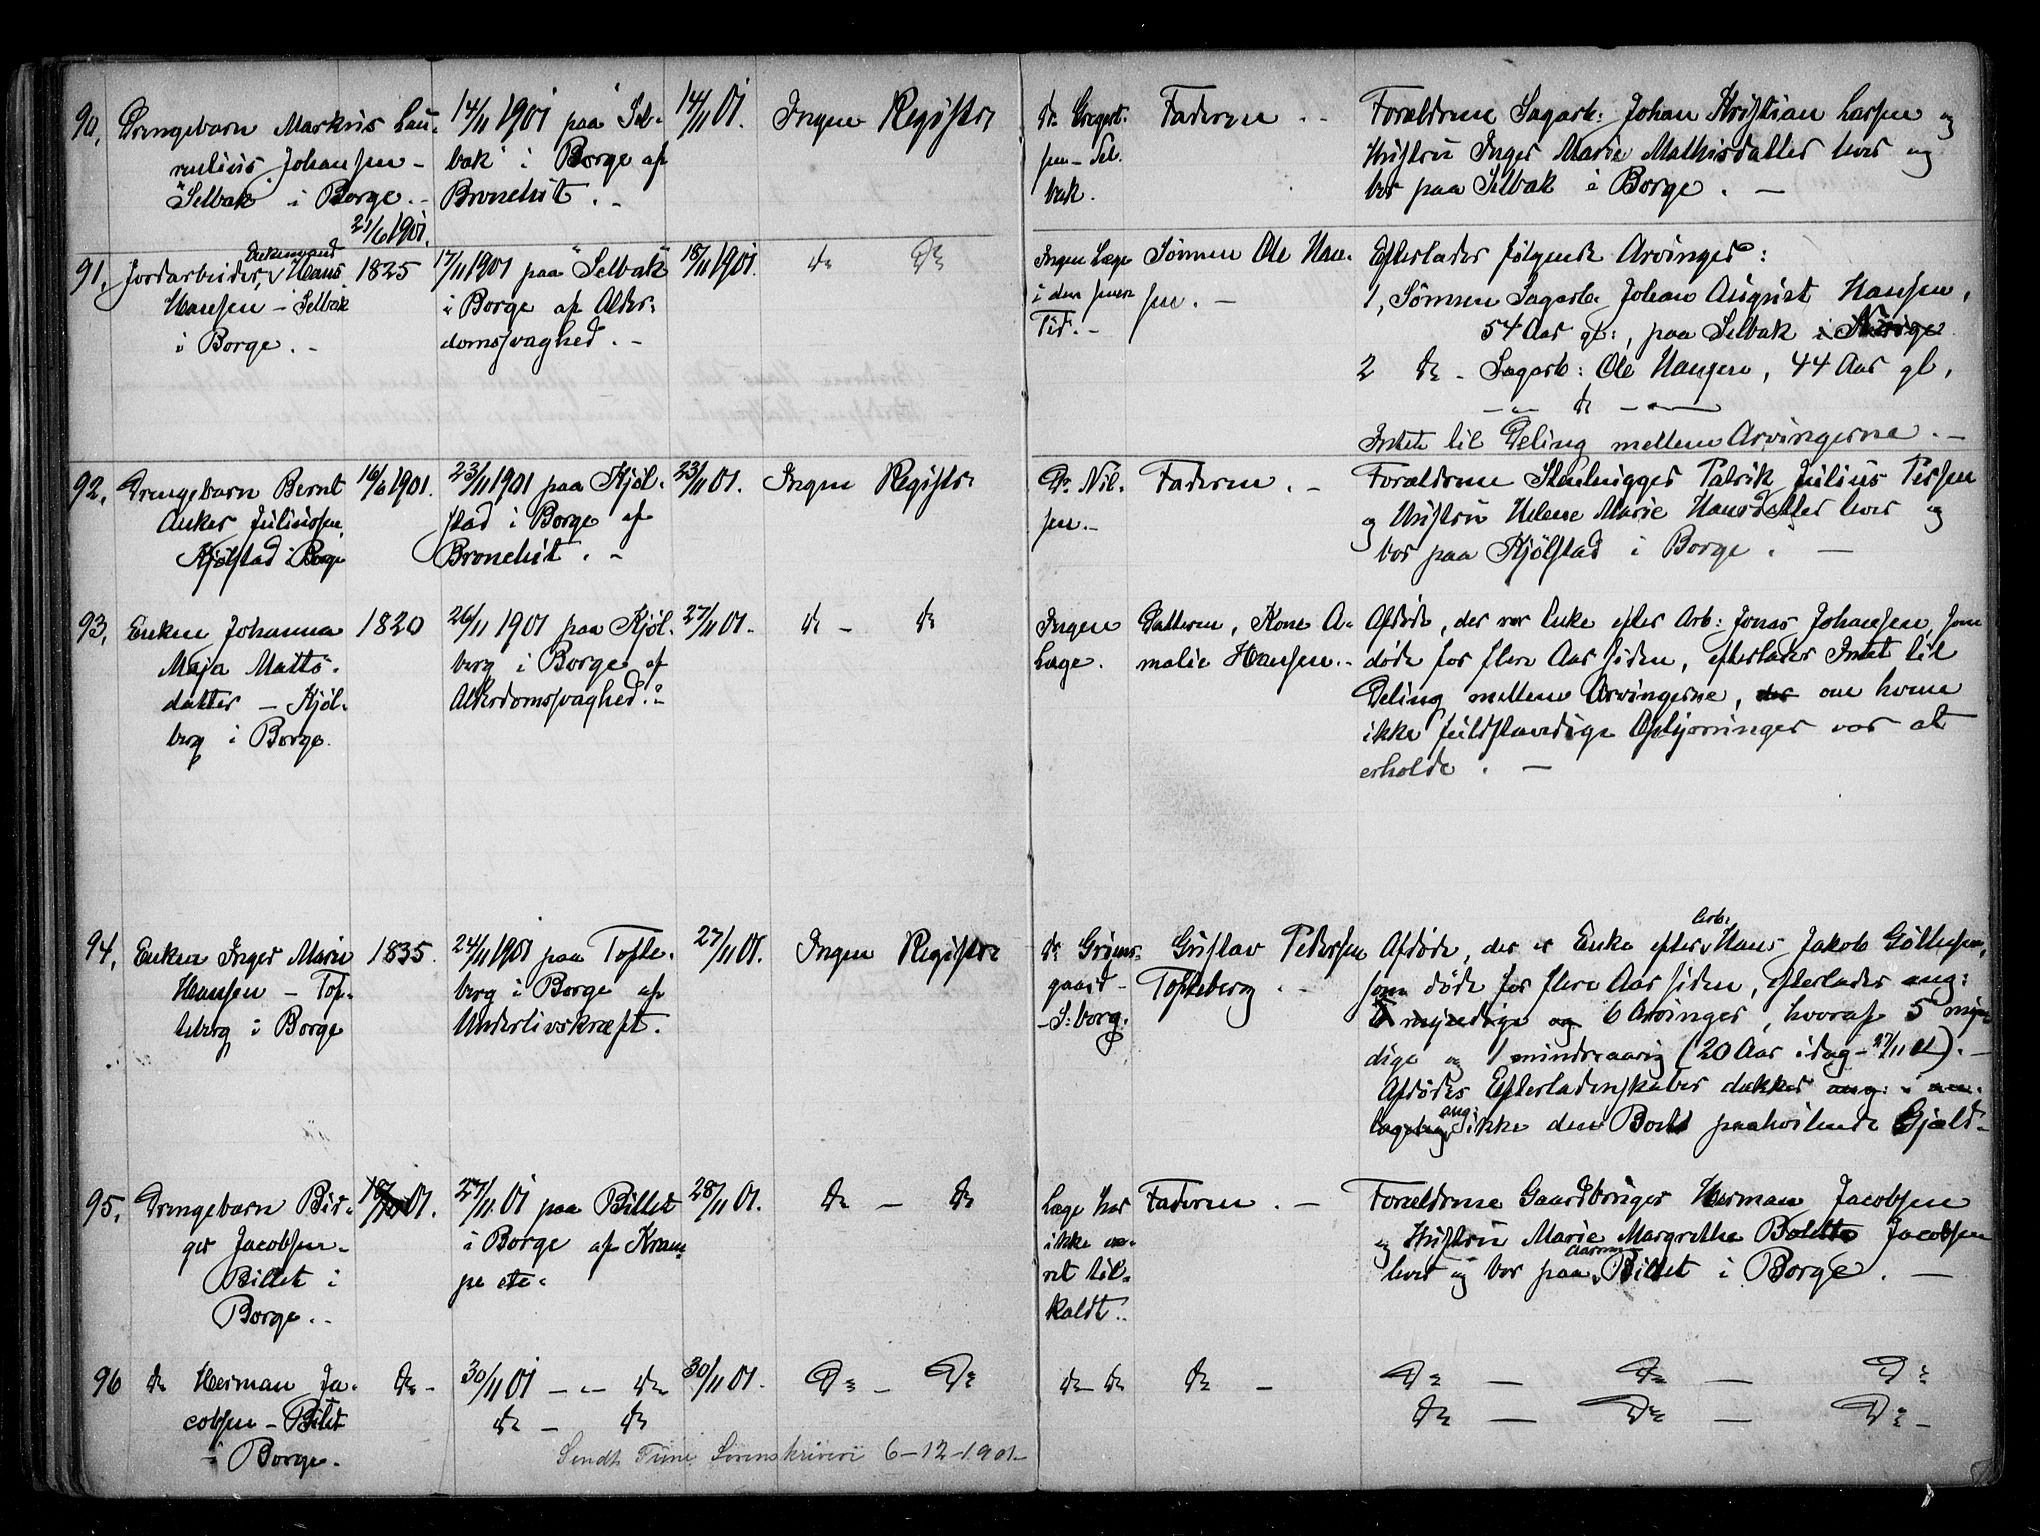 90, Drengebarn Markus Lau-
rentius Johansen -
"Selbak" i Borge. -
21/6 1901.
14/11 1901 paa Sel-
bak i Borge af
Bronchit. -
14/11 01.
Ingen Registr:
dr. Gregert-
sen - Sel-
bak.
Faderen. -
Forældrene Sagarb: Johan Kristian Larsen og
Hustru Inger Marie Mathisdatter lever og
bor paa Selbak i Borge. -
91, Jordarbeider, Enkemand Hans
Hansen - Selbak
i Borge. -
1825
17/11 1901 paa Selbak
i Borge af Alder-
domssvaghed. -
18/11 1901.
do Do
Ingen Læge
i den senere
Tid. -
Sønnen Ole Han-
sen. -
Efterlader følgende Arvinger:
1, Sønnen Sagarb. Johan August Hansen,
54 Aar gl:, paa Selbak i Borge
2 do - Sagarb: Ole Hansen, 44 Aar gl,
- " do - " -
Intet til Deling mellem Arvingerne. -
92, Drengebarn Bernt
Anker Juliussen,
Kjølstad i Borge
16/6 1901.
23/11 1901 paa Kjøl-
stad i Borge af
Bronchit. -
23/11 01.
Ingen Registr:
Dr. Nil-
sen. -
Faderen. -
Forældrene Stenhugger Patrik Julius Persen
og Hustru Helene Marie Hansdatter lever og
bor paa Kjølstad i Borge. -
93, Enken Johanna
Maja Matts-
datter - Kjøl-
berg i Borge.
1820
26/11 1901 paa Kjøl-
berg i Borge af
Alderdomssvaghed. -
27/11 01.
do - do
Ingen
Læge.
Datteren, Kone A-
malie Hansen. -
Afdøde, der var Enke efter Arb: Jonas Johansen, som
døde for flere Aar siden, efterlader Intet til
Deling mellem Arvingerne, der om hvem
ikke fuldstændige Oplysninger var at
erholde. -
94, Enken Inger Marie
Hansen - Tof-
teberg i Borge
1835.
24/11 1901 paa Tofte-
berg i Borge af
Underlivskræft.
27/11 01.
Ingen Registr:
dr. Grøns-
gaard -
- S:borg.
Gustav Pedersen
Tofteberg. -
Afdøde, der er Enke efter Arb: Hans Jakob Gulliksen,
som døde for flere Aar siden, efterlader ang:
myndige og 6 Arvinger, hvoraf 5 myn-
dige og 1 mindreaarig (20 Aar idag - 27/11 01). -
Afdødes Efterladenskaber dækker ang:
ang: ikke den Boets paahvilende Gjæld. -
95, Drengebarn Bir-
ger Jacobsen -
Billet i
Borge. -
18/10 01.
27/11 01 paa Billet
i Borge af Kram-
pe etc.
28/11 01.
do - do
Læge har
ikke væ-
ret til-
kaldt. -
Faderen. -
Forældrene Gaardbruger Herman Jacobsen
og Hustru Marie Margrethe Bolette Jacobsen
lever og bor paa Billet i Borge. -
96 do Herman Ja-
cobsen - Bilet
i Borge.
do -
30/11 01 - " - do
do - do
30/11 01.
Do - Do
do - do
do -
Do - Do - Do
Do - Do - Do -
Sendt Tune Sorenskriveri 6-12-1901-